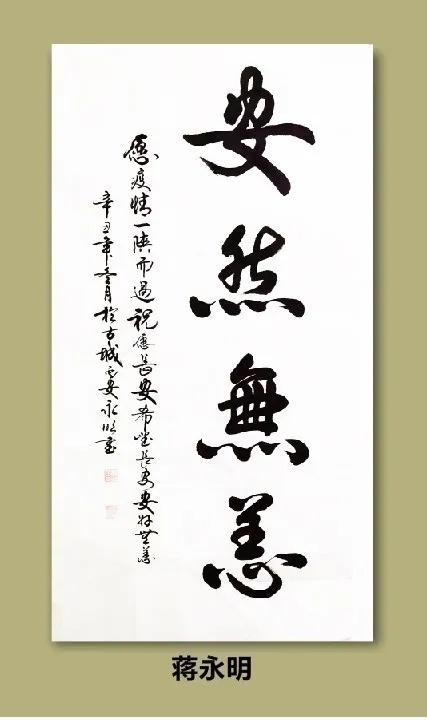 安然無恙
愿疫情一陕而過祝愿長安希望長安安好無恙
辛丑年冬月於古城西安永明書
蒋永明